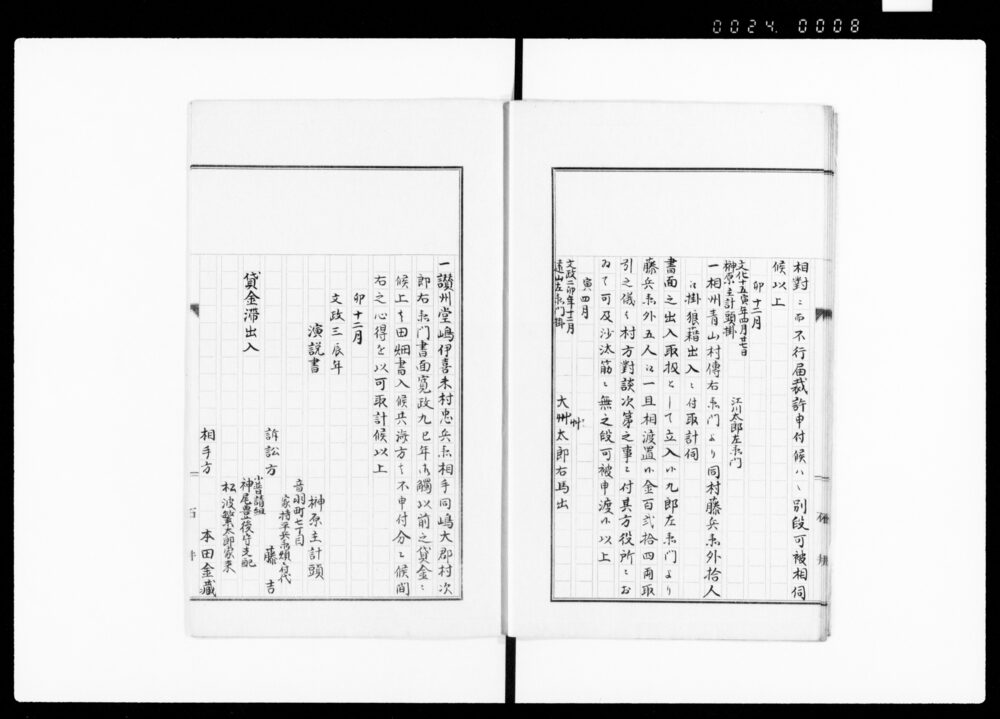 0024. 0008
相對ニ而不行届裁許申付候ハヽ別段可被相伺
候以上
卯十二月
文化十五寅年四月廿七日
榊原主計頭掛
江川太郎左衛門
一相州青山村傳右衛門ゟ同村藤兵衛外拾人
江掛狼藉出入ニ付取計伺
書面之出入取扱として立入候九郎左衛門より
藤兵衛外五人江一旦相渡置候金百弐拾四両取
引之儀ハ村方對談次第之事ニ付其方役所ニお
ゐて可及沙汰筋ニ無之段可被申渡候以上
寅四月
文政二卯年十二月
遠山左衛門掛
大艸太郎右馬出
一讃州堂嶋伊喜末村忠兵衛相手同嶋大郡村次
郎右衛門書面寛政九巳年御觸以前之貸金ニ
候上ハ田畑書入候共海方ハ不申付分ニ候間
右之心得を以可取計候以上
卯十二月
文政三辰年
演説書
榊原主計頭
貸金滞出入
音羽町七丁目
家持平兵衛煩ニ付代
訴訟方
藤吉
小普請組
神尾豊後守支配
松波繁太郎家来
相手方
本田金藏